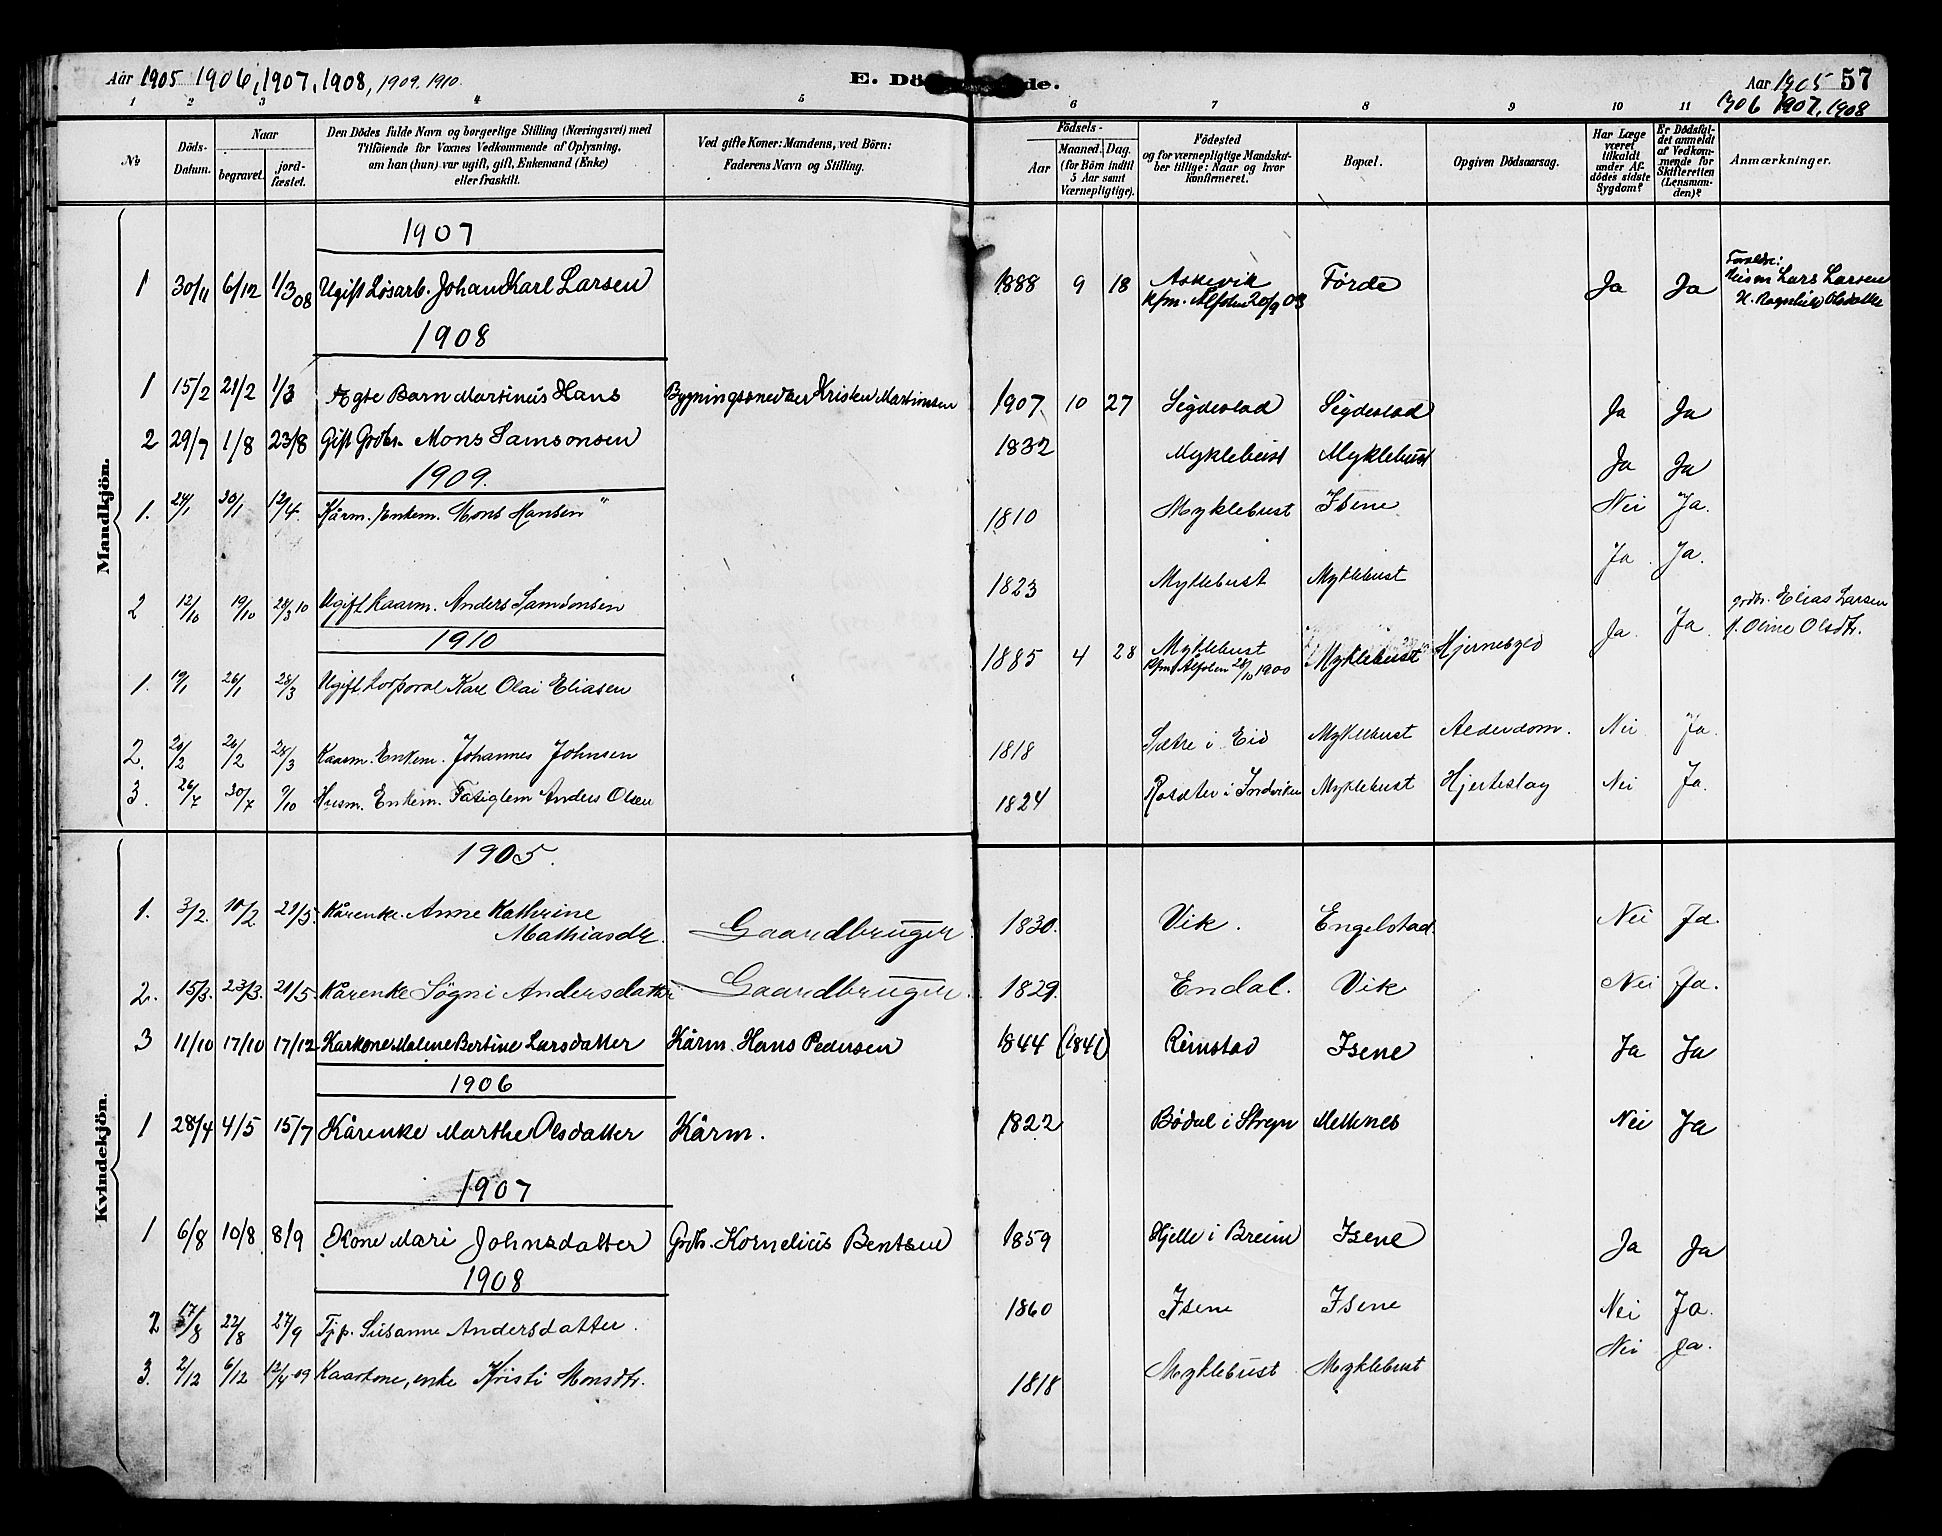 Aar 1905 1906, 1907, 1908, 1909. 1910. E. Dö de. Aar 1905 57
1906 1907, 1908
1 2 3 4 5 6 7 8 9 10 11
No
Döds-
Datum.
Naar
begravet.
jord-
fæstet.
Den Dödes fulde Navn og borgerlige Stilling (Næringsvei) med
Tilföiende for Voxnes Vedkommende af Oplysning,
om han (hun) var ugift, gift, Enkemand (Enke)
eller fraskilt.
Ved gifte Koner: Mandens, ved Börn:
Faderens Navn og Stilling.
Födsels-
Aar
Maaned. Dag.
(for Börn indtil
5 Aar samt
Værnepligtige).
Födested
og for værnepligtige Mandska-
ber tillige: Naar og hvor
konfirmeret.
Bopæl.
Opgiven Dödsaarsag.
Har Læge
været
tilkaldt
under Af-
dödes sidste
Sygdom?
Er Dödsfal-
det anmeldt
af Vedkom-
mende for
Skifteretten
(Lensman-
den)?
Anmærkninger.
Mandkjön.
1907
1 30/11 6/12 1/3 08 Ugift Løsarb. Johan Karl Larsen 1888 9 18 Askevik Förde Ja Ja
Kfm. Alfoten 20/9 03
Forældre:
Husm Lars Larsen
H. Ragnhild Olsdatter
1908
1 15/2 21/2 1/3 Ægte Barn Martinus Hans Bygningssnedker Kristen Martinsen 1907 10 27 Sigdestad Sigdestad Ja Ja
2 29/7 1/8 23/8 Gift Grdbr. Mons Samsonsen 1832 Myklebust Myklebust Ja Ja
1909.
1. 24/1 30/1 12/4 Kårm. Enkem. Mons Hansen 1810 Myklebust Isene Nei Ja.
2 12/10 19/10 28/3 10 Ugift kaarm. Anders Samsonsen 1823 Myklebust Myklebust Ja Ja.
1910
1. 19/1 26/1 28/3 Ugift korporal Karl Olai Eliasen 1885 4 28 Myklebust Myklebust Hjernebyld Ja. Ja.
Kfm. Alfoten 28/10 1900
grdbr. Elias Larsen
Oline Olsdtr.
2. 20/2 26/2 28/3 Kaarm. Enkem. Johannes Johnsen 1818 Sætre i Eid Myklebust Alderdom. Nei Ja.
3. 26/7 30/7 9/10 Husm. Enkem. Fatiglem Anders Olsen 1824 Rosæter i Indviken Myklebust Hjerteslag Nei Ja.
Kvindekjön.
1905.
1. 3/2. 10/2 21/5. Kårenke. Anne Kathrine
Mathiasdtr. Gaardbruger. 1830. Vik. Engelstad. Nei Ja.
2. 15/3. 23/3. 21/5 Kårenke Søgni Andersdatter Gaardbruger. 1829. Endal. Vik Nei Ja.
3 11/10 17/10 17/12 Karkone Malene Bertine Larsdatter Kårm. Hans Pedersen 1844 (1841) Rimstad Isene Ja Ja
1906
1 28/4 4/5 15/7 Kårenke Marthe Olsdatter Kårm. 1822 Bødal i Stryn Melkenes Nei Ja
1907
1 6/8 10/8 8/9 Kone Mari Johnsdatter Grdbr. Kornelius Bentsen 1859 Hjelle i Breim Isene Ja Ja
1908
2 17/8 22/8 27/9 Tjp. Susanne Andersdatter. 1860 Isene Isene Nei Ja.
3. 2/12 6/12 12/4 09 Kaarkone, enke Kristi Monsdtr. 1818 Myklebust Myklebust Nei Ja.